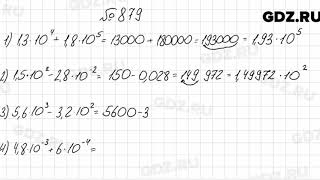 GDZ.RU
№ 879
1) 1,3·10⁴ + 1,8·10⁵ = 13000 + 180000 = 193000 = 1,93·10⁵
2) 1,5·10² - 2,8·10⁻² = 150 - 0,028 = 149 972 = 1,49972·10²
3) 5,6·10³ - 3,2·10² = 5600 - 3
4) 4,8·10⁻³ + 6·10⁻⁴ =